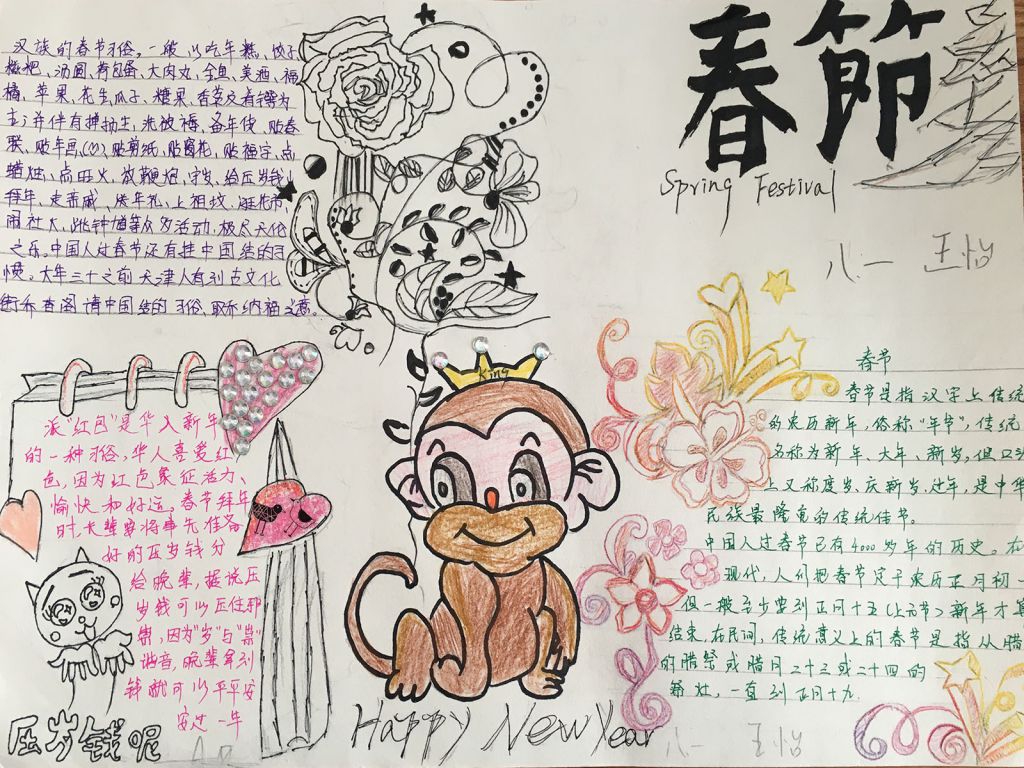 春節
Spring Festival
八一 王怡
汉族的春节习俗,一般以吃年糕、饺子
糍粑、汤圆、荷包蛋、大肉丸、全鱼、美酒、福
橘、苹果、花生瓜子、糖果、香茗及肴馔为
主;并伴有掸扬尘,洗被褥、备年货、贴春
联、贴年画、贴剪纸、贴窗花、贴福字、点
蜡烛、点旺火、放鞭炮、守岁、给压岁钱、
拜年、走亲戚、送年礼、上祖坟、逛花市、
闹社火、跳钟馗等众多活动,极尽天伦
之乐。中国人过春节还有挂中国结的习
惯。大年三十之前天津人有到古文化
街乔香阁请中国结的习俗,取乔纳福之意。
King
派"红包"是华人新年
的一种习俗,华人喜爱红
色,因为红色象征活力、
愉快和好运。春节拜年
时,长辈要将事先准备
好的压岁钱分
给晚辈,据说压
岁钱可以压住邪
祟,因为"岁"与"祟"
谐音,晚辈拿到
钱就可以平平安
安过一年
压岁钱呢
春节
春节是指汉字上传统
的农历新年,俗称"年节",传统
名称为新年、大年、新岁,但口头
上又称度岁、庆新岁、过年,是中华
民族最隆重的传统佳节。
中国人过春节已有4000多年的历史。在
现代,人们把春节定于农历正月初一
但一般至少要到正月十五(上元节)新年才算
结束,在民间,传统意义上的春节是指从腊
的腊祭或腊月二十三或二十四的
祭灶,一直到正月十九
Happy New Year
八一 王怡